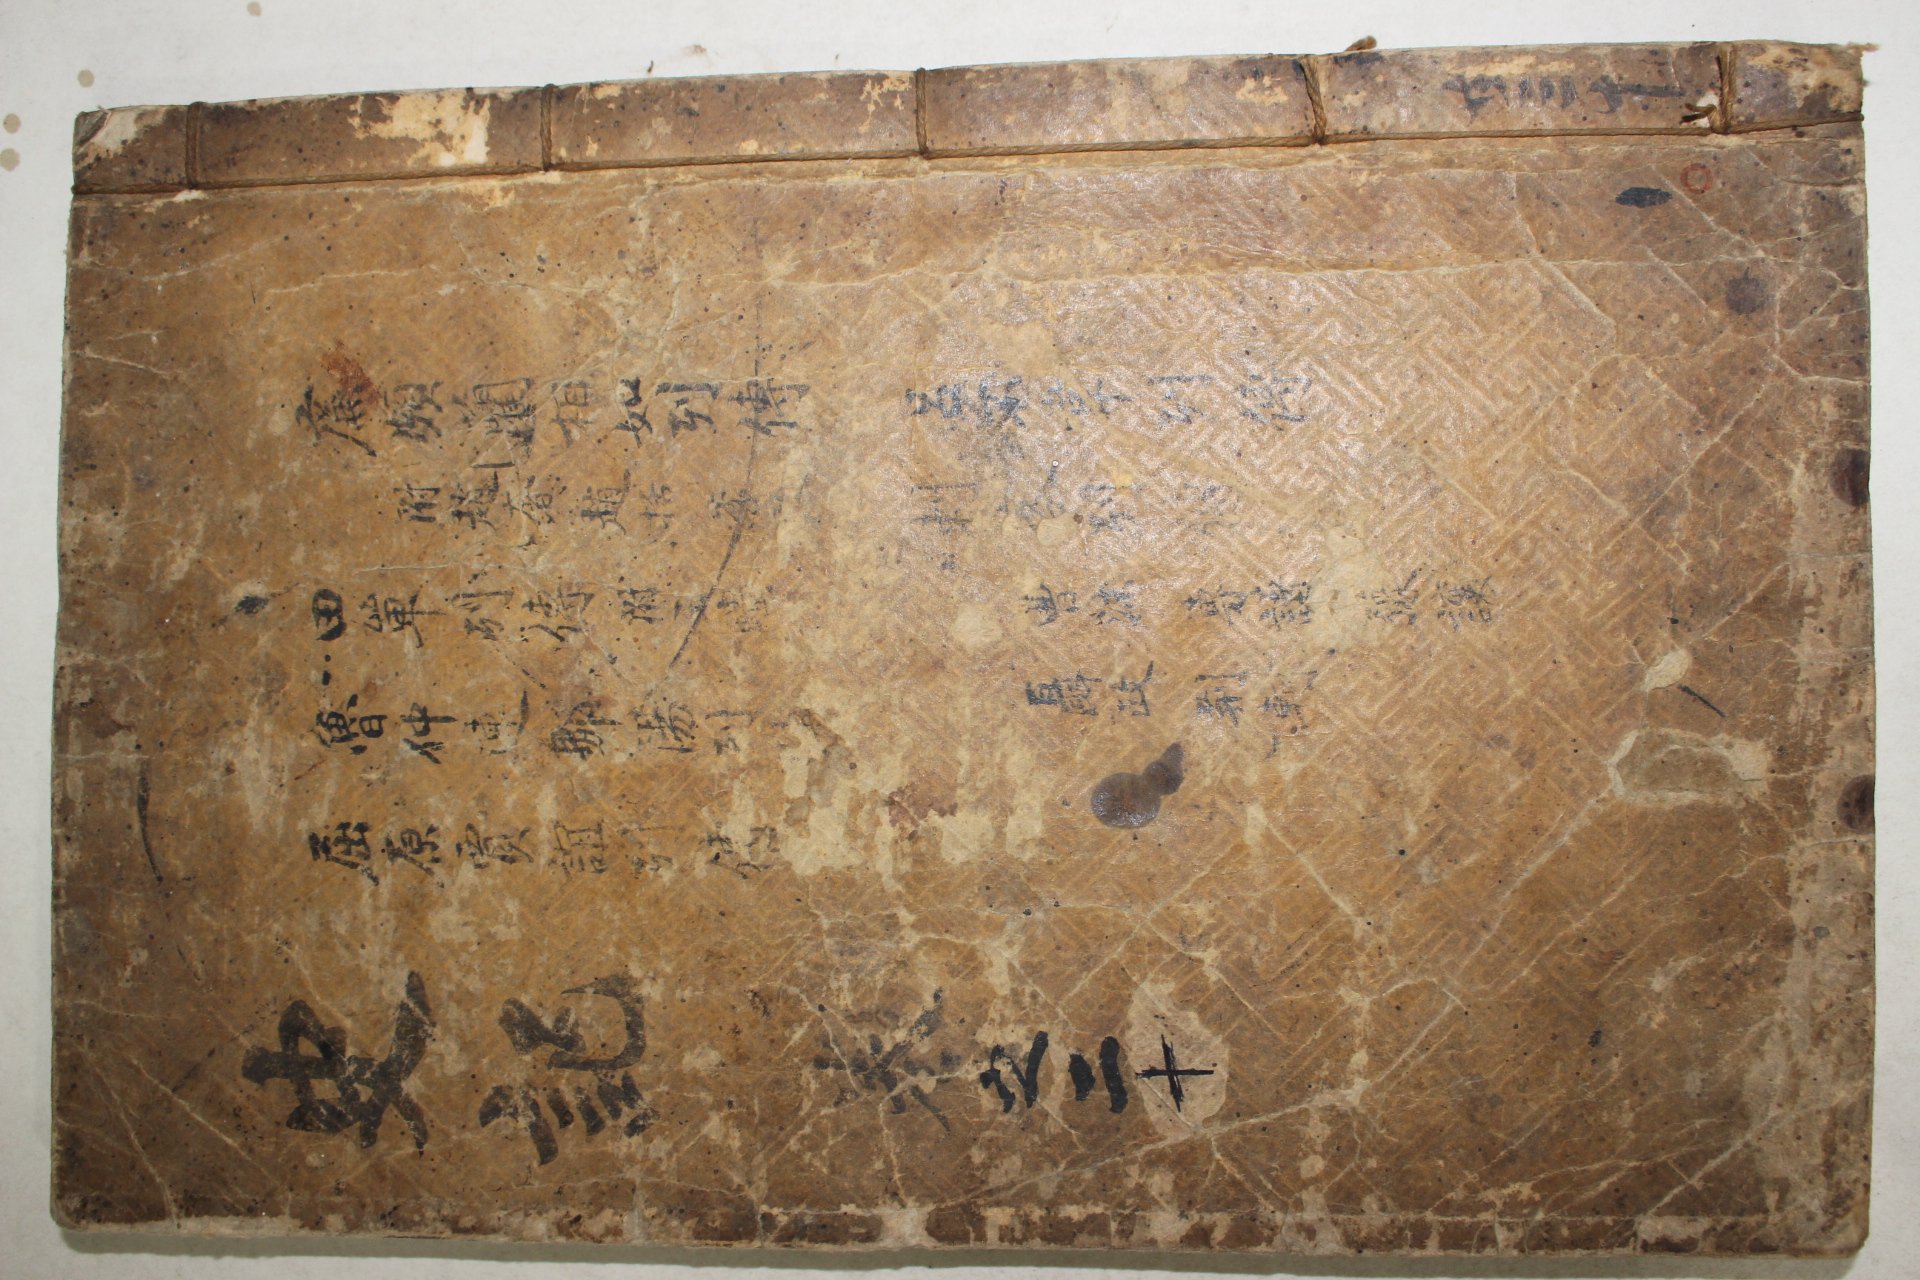 廉頗藺相如列傳
附趙奢 趙括 李牧
田單列傳 附王蠋
魯仲連鄒陽列傳
屈原賈誼列傳
呂不韋列傳
刺客列傳
曹沫 專諸 豫讓
聶政 荊軻
史記 卷之二十
共三十